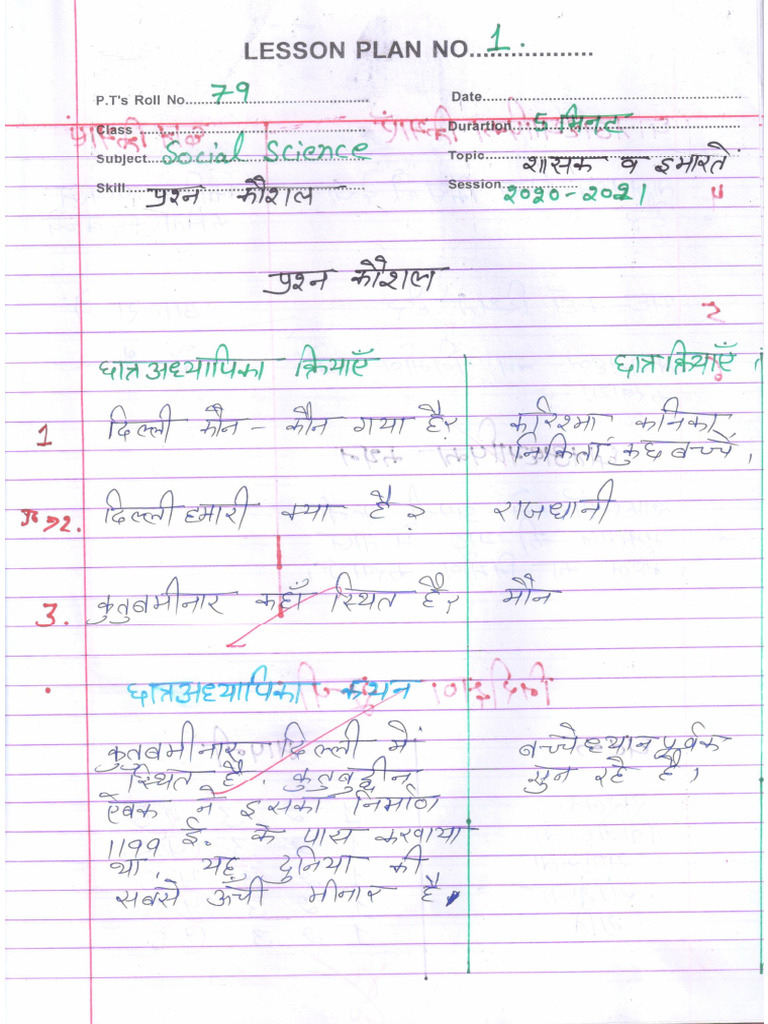 LESSON PLAN NO. 1.
P.T's Roll No. 79 Date
Class Durartion 5 मिनट
Subject Social Science Topic शासक व इमारतें
Skill प्रश्न कौशल Session २०२०-२०२1
प्रश्न कौशल
छात्रअध्यापिका क्रियाएँ छात्र क्रियाएँ
1 दिल्ली कौन - कौन गया है? करिश्मा, कनिका,
निकिता, कुछ बच्चे,
2. दिल्ली हमारी क्या है? राजधानी
3. कुतुबमीनार कहाँ स्थित है? मौन
छात्रअध्यापिका कथन
कुतुबमीनार दिल्ली में बच्चे ध्यान पूर्वक
स्थित है। कुतुबुद्दीन सुन रहे है,
ऐबक ने इसका निर्माण
1199 ई. के पास करवाया
था, यह दुनिया की
सबसे ऊँची मीनार है,